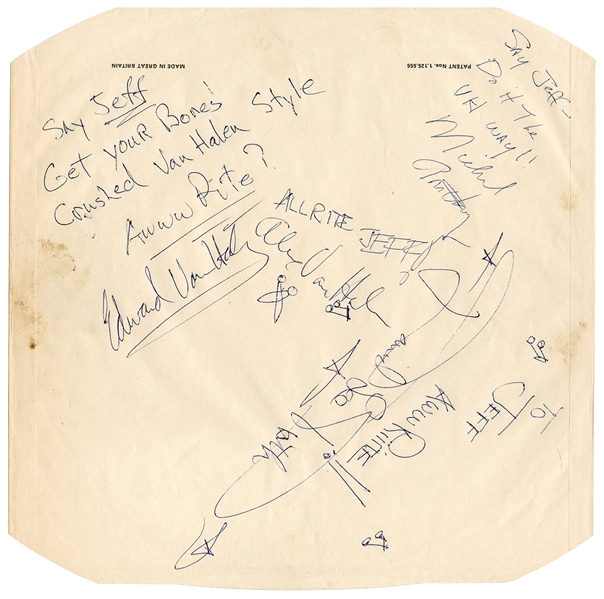 MADE IN GREAT BRITAIN
PATENT Nos. 1,125,555
Say Jeff
Get your Bones
Crushed Van Halen Style
Awww Rite?
Edward Van Halen
Say Jeff-
Do it the
VH way!!
Michael
Anthony
ALLRITE JEFF
Alex Van Halen
To
JEFF
Aww Riiite
David
Lee
Roth